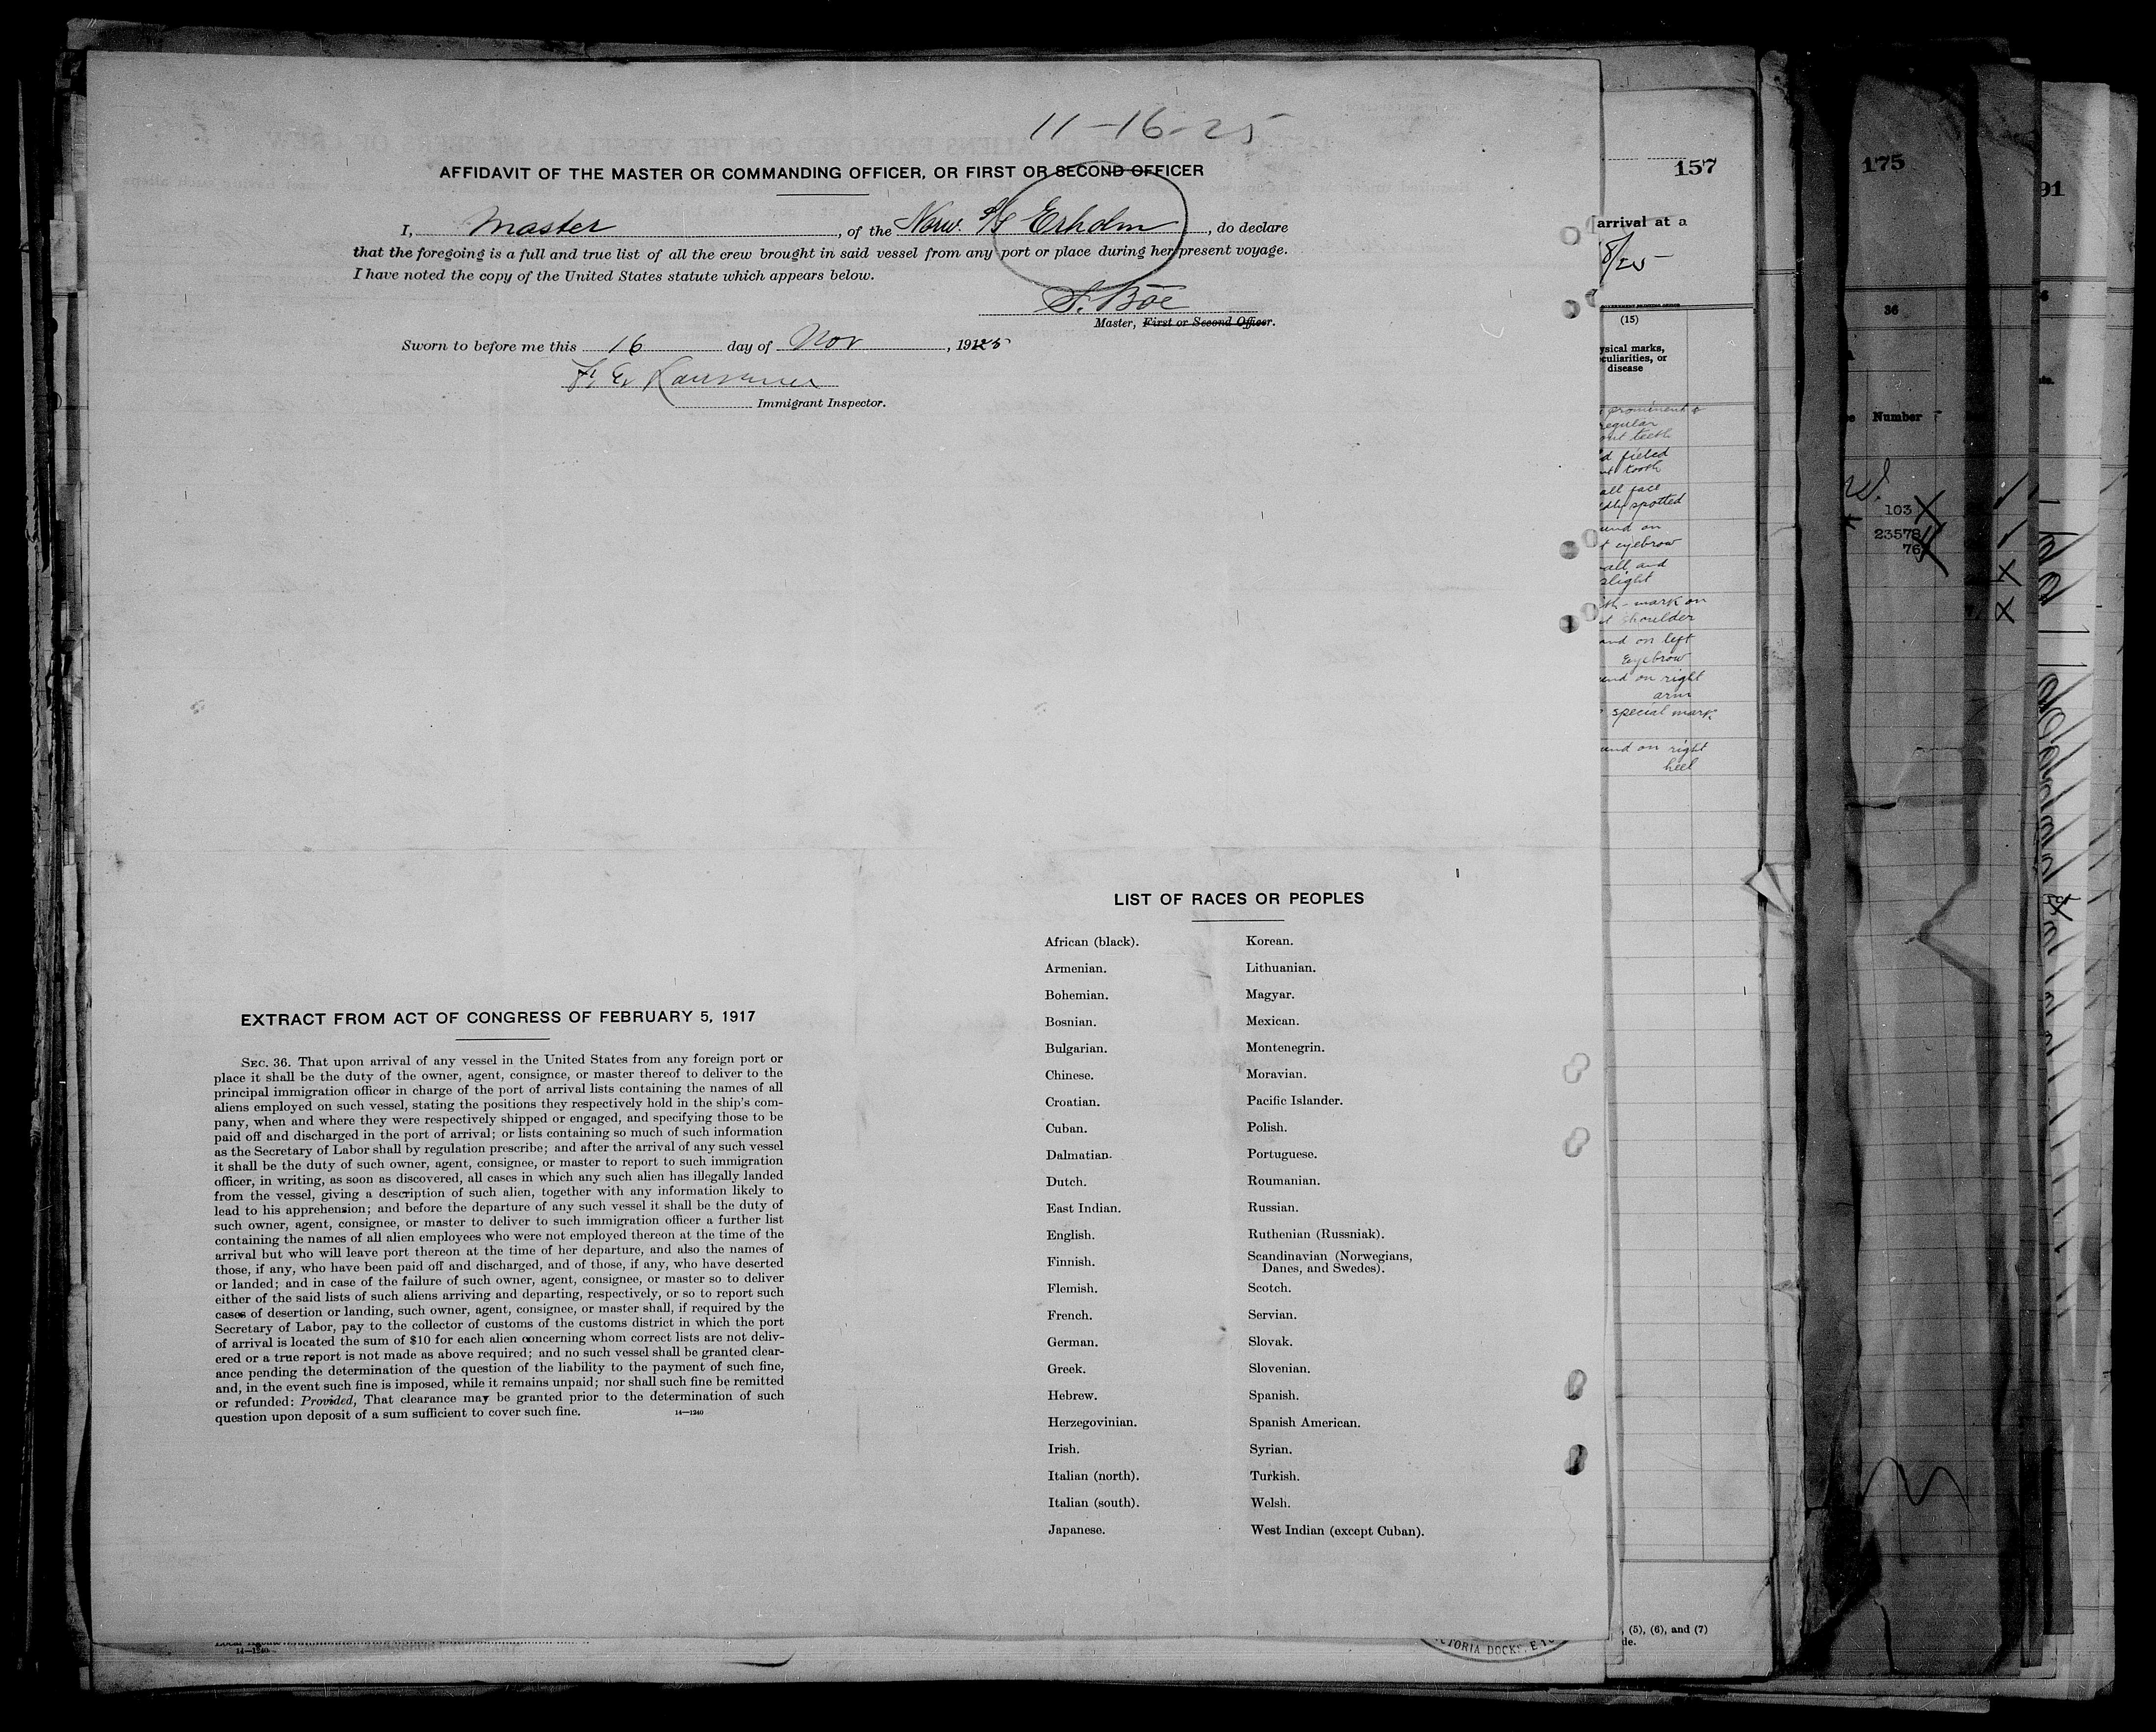 11-16-25
AFFIDAVIT OF THE MASTER OR COMMANDING OFFICER, OR FIRST OR SECOND OFFICER
I, Master, of the Norw. S/S Erholm, do declare
that the foregoing is a full and true list of all the crew brought in said vessel from any port or place during her present voyage.
I have noted the copy of the United States statute which appears below.
S. Böe
Master, First or Second Officer.
Sworn to before me this 16 day of Nov, 1925
F. E.
Immigrant Inspector.
EXTRACT FROM ACT OF CONGRESS OF FEBRUARY 5, 1917
SEC. 36. That upon arrival of any vessel in the United States from any foreign port or
place it shall be the duty of the owner, agent, consignee, or master thereof to deliver to the
principal immigration officer in charge of the port of arrival lists containing the names of all
aliens employed on such vessel, stating the positions they respectively hold in the ship's com-
pany, when and where they were respectively shipped or engaged, and specifying those to be
paid off and discharged in the port of arrival; or lists containing so much of such information
as the Secretary of Labor shall by regulation prescribe; and after the arrival of any such vessel
it shall be the duty of such owner, agent, consignee, or master to report to such immigration
officer, in writing, as soon as discovered, all cases in which any such alien has illegally landed
from the vessel, giving a description of such alien, together with any information likely to
lead to his apprehension; and before the departure of any such vessel it shall be the duty of
such owner, agent, consignee, or master to deliver to such immigration officer a further list
containing the names of all alien employees who were not employed thereon at the time of the
arrival but who will leave port thereon at the time of her departure, and also the names of
those, if any, who have been paid off and discharged, and of those, if any, who have deserted
or landed; and in case of the failure of such owner, agent, consignee, or master so to deliver
either of the said lists of such aliens arriving and departing, respectively, or so to report such
cases of desertion or landing, such owner, agent, consignee, or master shall, if required by the
Secretary of Labor, pay to the collector of customs of the customs district in which the port
of arrival is located the sum of $10 for each alien concerning whom correct lists are not deliv-
ered or a true report is not made as above required; and no such vessel shall be granted clear-
ance pending the determination of the question of the liability to the payment of such fine,
and, in the event such fine is imposed, while it remains unpaid; nor shall such fine be remitted
or refunded: Provided, That clearance may be granted prior to the determination of such
question upon deposit of a sum sufficient to cover such fine. 14—1240
LIST OF RACES OR PEOPLES
African (black).
Armenian.
Bohemian.
Bosnian.
Bulgarian.
Chinese.
Croatian.
Cuban.
Dalmatian.
Dutch.
East Indian.
English.
Finnish.
Flemish.
French.
German.
Greek.
Hebrew.
Herzegovinian.
Irish.
Italian (north).
Italian (south).
Japanese.
Korean.
Lithuanian.
Magyar.
Mexican.
Montenegrin.
Moravian.
Pacific Islander.
Polish.
Portuguese.
Roumanian.
Russian.
Ruthenian (Russniak).
Scandinavian (Norwegians,
Danes, and Swedes).
Scotch.
Servian.
Slovak.
Slovenian.
Spanish.
Spanish American.
Syrian.
Turkish.
Welsh.
West Indian (except Cuban).
14—1240
TORIA DOCKS, E
157
arrival at a
8/25
(15)
ysical marks,
culiarities, or
disease
prominent &
regular
out teeth
d fieled
tooth
all face
edly spotted
und on
t eyebrow
all and
slight
th-mark on
t shoulder
and on left
Eyebrow
und on right
arm
special mark
und on right
heel
(5), (6), and (7)
de.
175
36
Number
103
23578
76
91